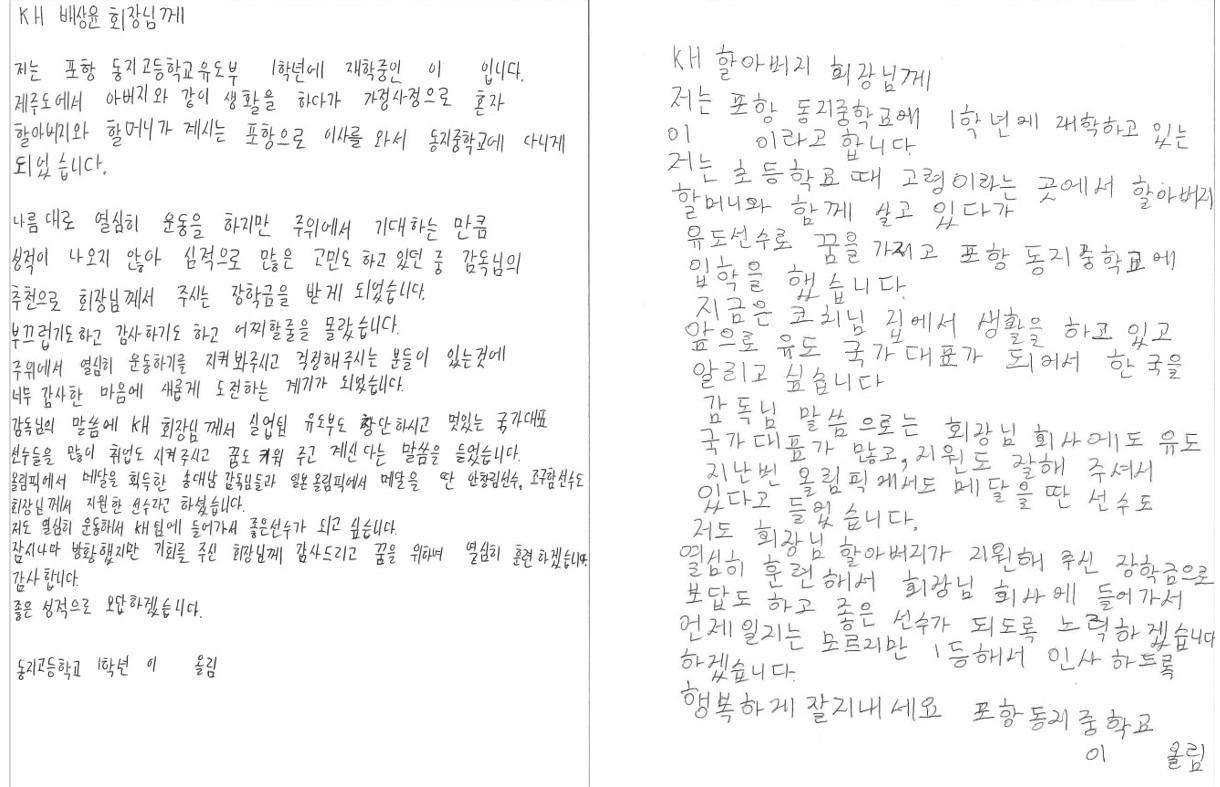 KH 배상윤 회장님께
저는 포항 동지고등학교유도부 1학년에 재학중인 이 입니다.
제주도에서 아버지와 같이 생활을 하다가 가정사정으로 혼자
할아버지와 할머니가 계시는 포항으로 이사를 와서 동지중학교에 다니게
되었습니다.
나름대로 열심히 운동을 하지만 주위에서 기대하는 만큼
성적이 나오지 않아 심적으로 많은 고민도 하고 있던 중 감독님의
추천으로 회장님께서 주시는 장학금을 받게 되었습니다.
부끄럽기도하고 감사하기도 하고 어찌할줄을 몰랐습니다.
주위에서 열심히 운동하기를 지켜봐주시고 걱정해주시는 분들이 있는것에
너무 감사한 마음에 새롭게 도전하는 계기가 되었습니다.
감독님의 말씀에 KH 회장님께서 실업팀 유도부도 창단하시고 멋있는 국가대표
선수들을 많이 취업도 시켜주시고 꿈도 키워 주고 계신다는 말씀을 들었습니다.
올림픽에서 메달을 획득한 송대남 감독님들과 일본올림픽에서 메달을 딴 안창림선수, 조구함선수도
회장님께서 지원한 선수라고 하셨습니다.
저도 열심히 운동해서 KH팀에 들어가서 좋은선수가 되고 싶습니다.
잠시나마 방황했지만 기회를 주신 회장님께 감사드리고 꿈을 위하여 열심히 훈련하겠습니다.
감사합니다.
좋은 성적으로 보답하겠습니다.
동지고등학교 1학년 이 올림
KH 할아버지 회장님께
저는 포항 동지중학교에 1학년에 재학하고 있는
이 이라고 합니다.
저는 초등학교때 고령이라는 곳에서 할아버지
할머니와 함께 살고 있다가
유도선수로 꿈을 가지고 포항 동지중학교에
입학을 했습니다.
지금은 코치님 집에서 생활을 하고 있고
앞으로 유도 국가대표가 되어서 한국을
알리고 싶습니다
감독님 말씀으로는 회장님 회사에도 유도
국가대표가 많고, 지원도 잘해 주셔서
지난번 올림픽에서도 메달을 딴 선수도
있다고 들었습니다.
저도 회장님 할아버지가 지원해 주신 장학금으로
열심히 훈련해서 회장님 회사에 들어가서
보답도 하고 좋은 선수가 되도록 노력하겠습니다
언제일지는 모르지만 1등해서 인사하도록
하겠습니다.
행복하게 잘지내세요 포항동지중학교
이 올림